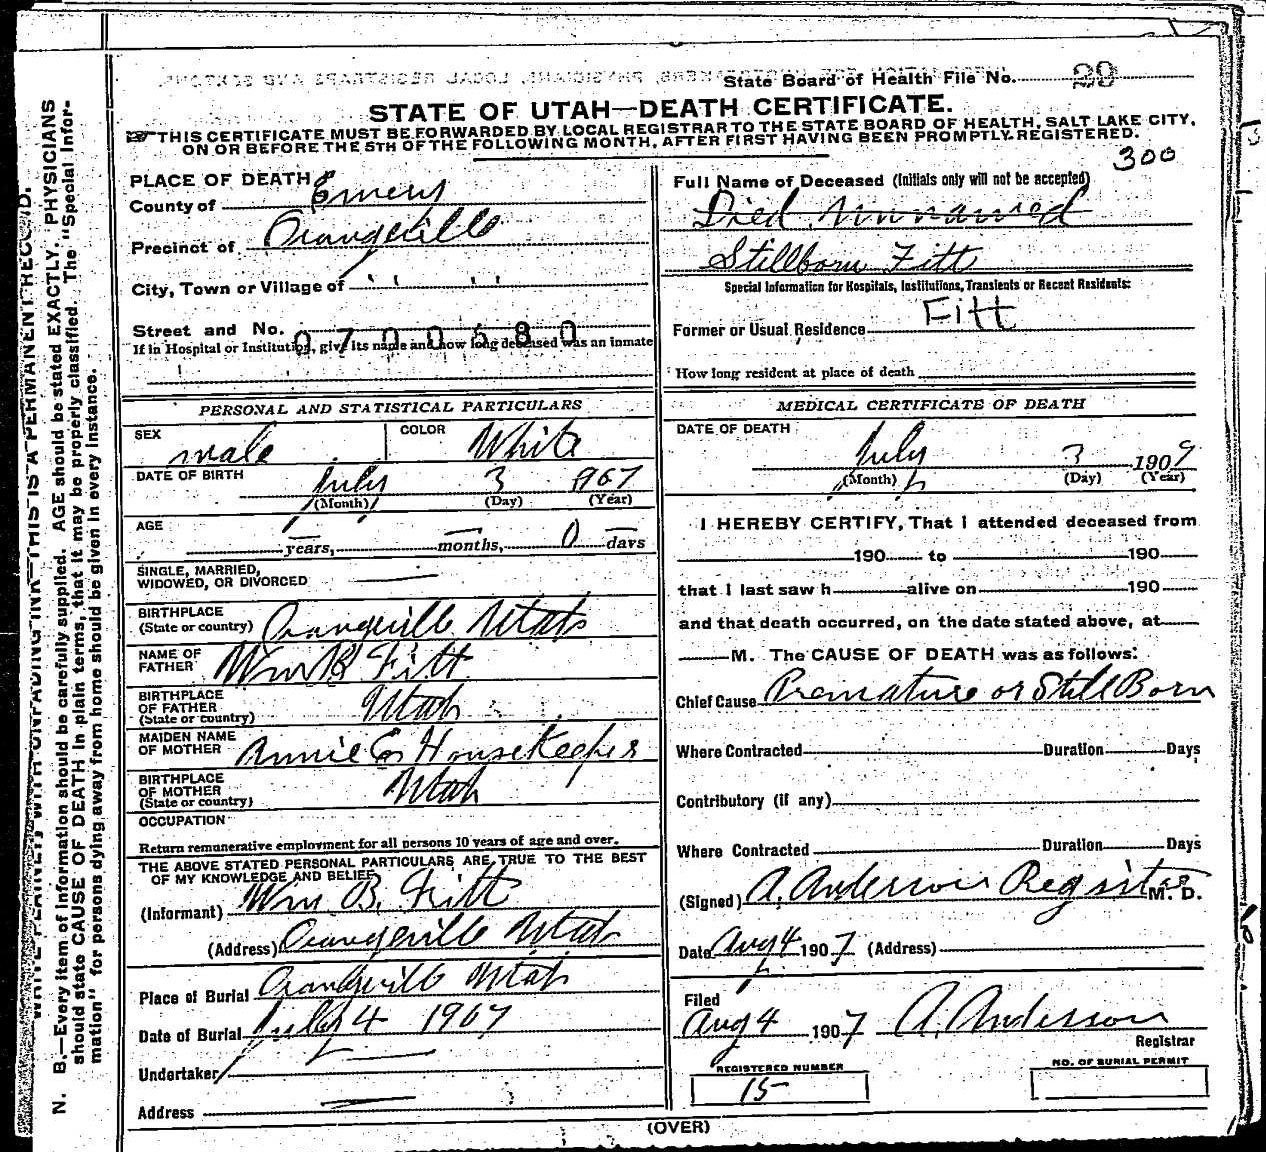 State Board of Health File No. 29
STATE OF UTAH—DEATH CERTIFICATE.
THIS CERTIFICATE MUST BE FORWARDED BY LOCAL REGISTRAR TO THE STATE BOARD OF HEALTH, SALT LAKE CITY,
ON OR BEFORE THE 5TH OF THE FOLLOWING MONTH, AFTER FIRST HAVING BEEN PROMPTLY REGISTERED.
300
PLACE OF DEATH
County of Emery
Precinct of Orangeville
City, Town or Village of " "
Street and No.
0700680
If in Hospital or Institution, give its name and how long deceased was an inmate
Full Name of Deceased (Initials only will not be accepted)
Died Unnamed
Stillborn Fitt
Special Information for Hospitals, Institutions, Transients or Recent Residents:
Fitt
Former or Usual Residence
How long resident at place of death
PERSONAL AND STATISTICAL PARTICULARS
SEX male COLOR White
DATE OF BIRTH July 3 1907
(Month) (Day) (Year)
AGE
— years, — months, 0 days
SINGLE, MARRIED,
WIDOWED, OR DIVORCED —
BIRTHPLACE
(State or country) Orangeville Utah
NAME OF
FATHER Wm B Fitt
BIRTHPLACE
OF FATHER
(State or country) Utah
MAIDEN NAME
OF MOTHER Annie E Housekeeper
BIRTHPLACE
OF MOTHER
(State or country) Utah
OCCUPATION
Return remunerative employment for all persons 10 years of age and over.
THE ABOVE STATED PERSONAL PARTICULARS ARE TRUE TO THE BEST
OF MY KNOWLEDGE AND BELIEF
(Informant) Wm B. Fitt
(Address) Orangeville Utah
Place of Burial Orangeville Utah
Date of Burial July 4 1907
Undertaker —
Address —
MEDICAL CERTIFICATE OF DEATH
DATE OF DEATH
July 3 1907
(Month) (Day) (Year)
I HEREBY CERTIFY, That I attended deceased from
190 to 190
that I last saw h alive on 190
and that death occurred, on the date stated above, at
M. The CAUSE OF DEATH was as follows:
Chief Cause Premature or Still Born
Where Contracted Duration Days
Contributory (if any)
Where Contracted Duration Days
(Signed) A. Anderson Registrar M. D.
Date Aug 4 1907 (Address)
Filed
Aug 4 1907 A. Anderson
Registrar
REGISTERED NUMBER
15
NO. OF BURIAL PERMIT
(OVER)
WRITE PLAINLY, WITH UNFADING INK—THIS IS A PERMANENT RECORD.
N. B.—Every item of information should be carefully supplied. AGE should be stated EXACTLY. PHYSICIANS
should state CAUSE OF DEATH in plain terms, that it may be properly classified. The "Special Infor-
mation" for persons dying away from home should be given in every instance.